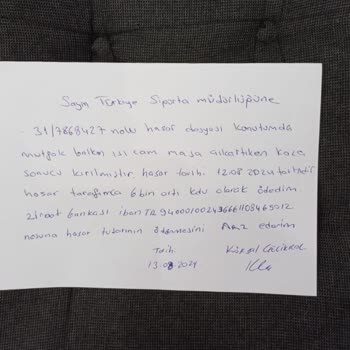 Sayın Türkiye Sigorta müdürlüğüne
31/7868427 nolu hasar dosyası konutumda
mutfak balkon ısı cam masa çıkartıken kaza
sonucu kırılmıştır hasar tarihi 12.08.2024 tarihidir
hasar tarafımca 6 bin artı kdv olarak ödedim
ziraat bankası iban TR
noluna hasar tutarının ödenmesini Arz ederim
Tarih
13.08.2024